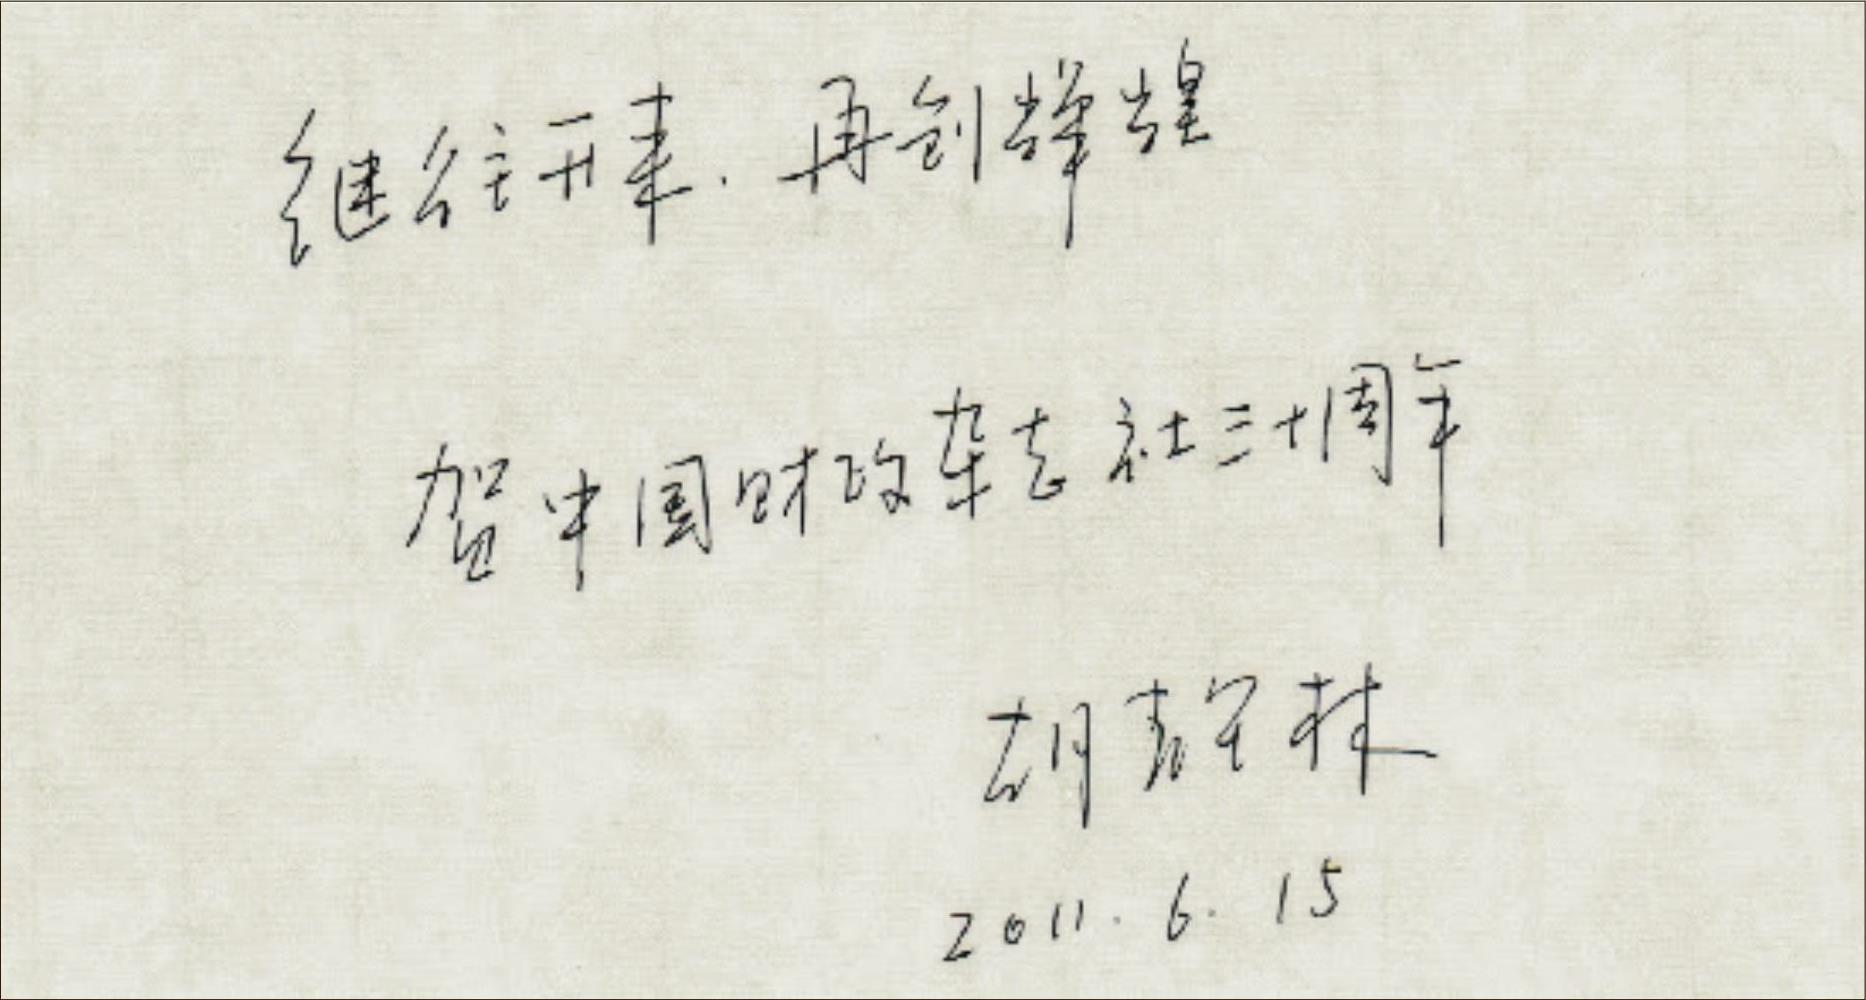 继往开来.再创辉煌
贺中国财政杂志社三十周年
胡静林
2011.6.15